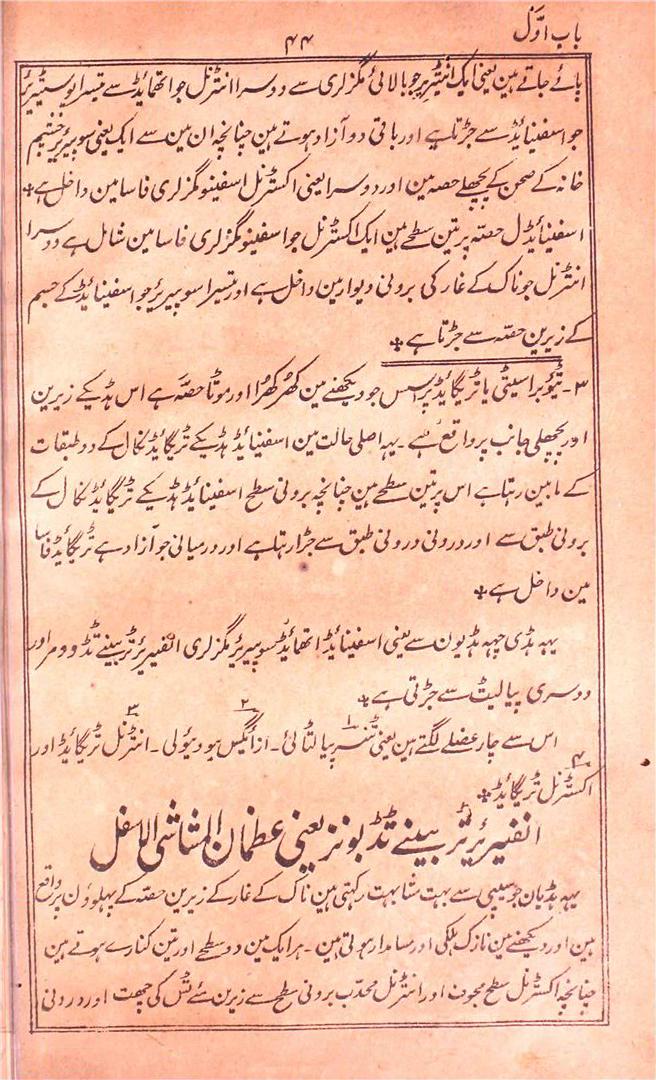 باب اوّل
۴۴
پائے جاتے ہین یعنی ایک انٹیریر جو بالائی مگزلری سے دوسرا انٹرنل جو اتھمائیڈ سے تیسرا پوسٹیریر
جو اسفینائیڈ سے جڑتا ہے اور باقی دو آزاد ہوتے ہین چنانچہ ان مین سے ایک یعنی سوپیریر چشم
خانہ کے صحن کے پچھلے حصہ مین اور دوسرا یعنی اکسٹرنل اسفینو مگزلری فاسا مین داخل ہے
اسفینائیڈل حصّہ پر تین سطحے ہین ایک اکسٹرنل جو اسفینو مگزلری فاسا مین شامل ہے دوسرا
انٹرنل جو ناک کے غار کی برونی دیوار مین داخل ہے اور تیسرا سوپیریر جو اسفینائیڈ کے جسم
کے زیرین حصّہ سے جڑتا ہے
۳۔ ٹیوبراسیٹی یا ٹریگائیڈ پراسس جو دیکھنے مین کھُر کھُرا اور موٹا حصّہ ہے اس ہڈیکے زیرین
اور پچھلی جانب پر واقع ہے ۔ یہہ اصلی حالت مین اسفنیائیڈ ہڈیکے ٹریگائیڈ کنال کے دو طبقات
کے مابین رہتا ہے اس پر تین سطحے ہین چنانچہ برونی سطح اسفینائیڈ ہڈیکے ٹریگائیڈ کنال کے
برونی طبق سے اور درونی درونی طبق سے جڑا رہتا ہے اور درمیانی جو آزاد ہے ٹریگائیڈ فاسا
مین داخل ہے
یہہ ہڈی چہہ ہڈیون سے یعنی اسفینایڈ اتھمائیڈ سوپیریر مگزلری انفیریر ٹربینے ٹڈ وومر اور
دوسری پیالیٹ سے جڑتی ہے
اس سے چار عضلے لگتے ہین یعنی ۱ ٹنسر پیالٹائی ۔ ۲ ازائگس یوویولی ۔ ۳ انٹرنل ٹریگائیڈ اور
۴ اکسٹرنل ٹریگائیڈ
انفیریر ٹربینے ٹڈ بونز یعنی عظمان المشاشی الاسفل
یہہ ہڈیان جو سیپی سے بہت مشابہت رکہتی ہین ناک کے غار کے زیرین حصّہ کے پہلوؤن پر واقع
ہین اور دیکھنے مین نازک ہلکی اور مسامدار ہوتی ہین ۔ ہر ایک مین دو سطحے اور تین کنارے ہوتے ہین
چنانچہ اکسٹرنل سطح مجوف اور انٹرنل محدّب برونی سطح سے زیرین مئے ٹس کی چھت اور درونی